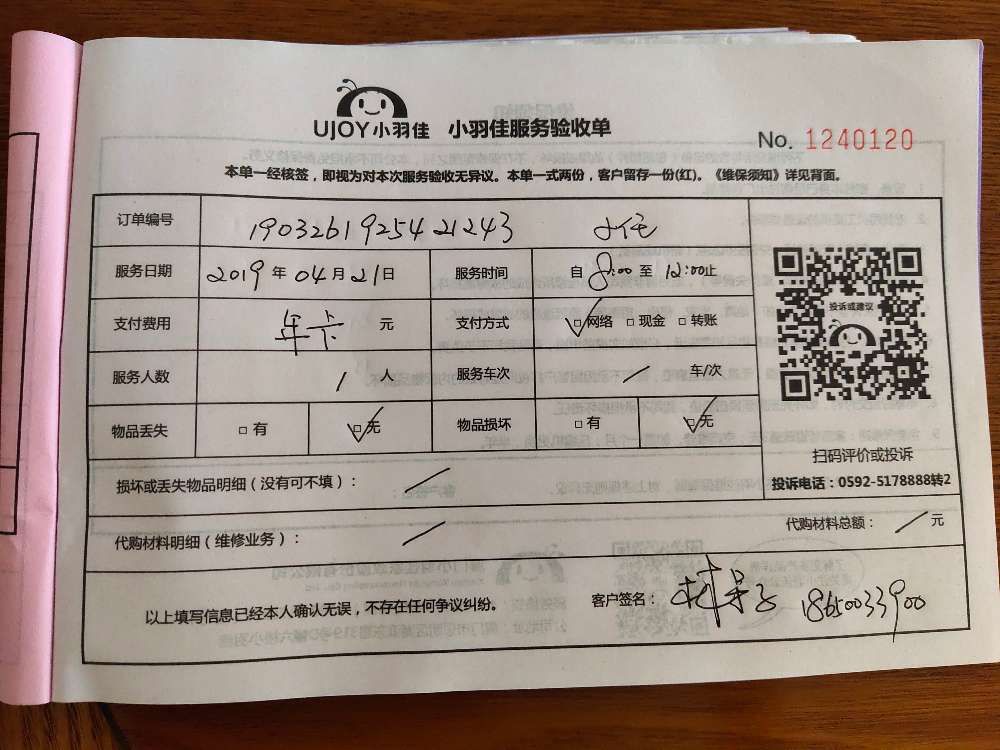 UJOY小羽佳 小羽佳服务验收单
No. 1240120
本单一经核签，即视为对本次服务验收无异议。本单一式两份，客户留存一份(红)。《维保须知》详见背面。
订单编号 1903261925421243
服务日期 2019年04月21日 服务时间 自8:00至12:00止
投诉或建议
支付费用 年卡 元 支付方式 ☑网络 □现金 □转账
服务人数 1 人 服务车次 / 车/次
物品丢失 □有 ☑无 物品损坏 □有 ☑无
扫码评价或投诉
投诉电话：0592-5178888转2
损坏或丢失物品明细（没有可不填）： /
代购材料明细（维修业务）： / 代购材料总额： / 元
以上填写信息已经本人确认无误，不存在任何争议纠纷。 客户签名： 18650033900